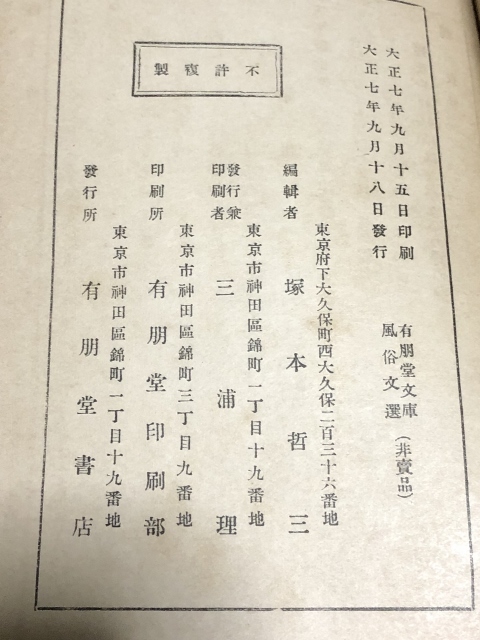 大正七年九月十五日印刷
大正七年九月十八日發行
不許複製
有朋堂文庫
風俗文選
(非賣品)
東京府下大久保町西大久保二百三十六番地
編輯者 塚本哲三
東京市神田區錦町一丁目十九番地
發行兼
印刷者 三浦理
東京市神田區錦町三丁目九番地
印刷所 有朋堂印刷部
東京市神田區錦町一丁目十九番地
發行所 有朋堂書店